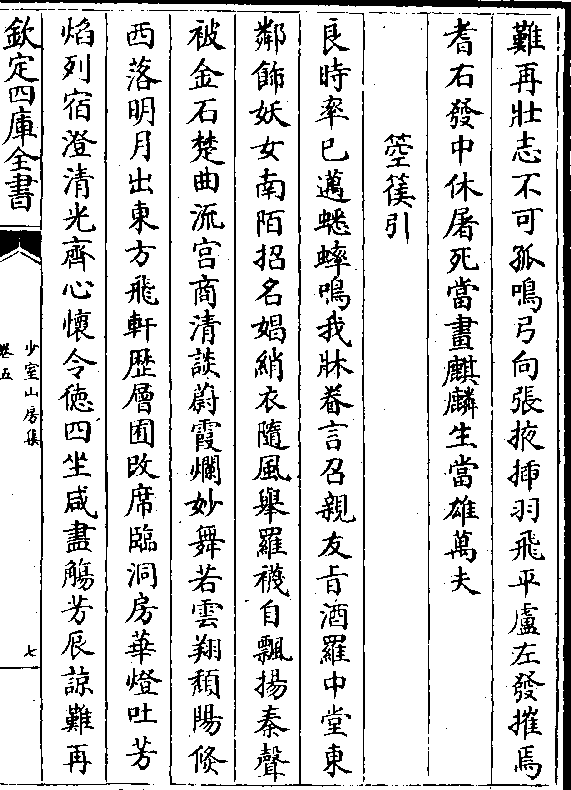 難再壯志不可孤鳴弓向張掖揷羽飛平盧左發摧焉
耆右發中休屠死當畫麒麟生當雄萬夫
箜篌引
良時率已邁蟋蟀鳴我牀眷言召親友旨酒羅中堂東
鄰飾妖女南陌招名娼綃衣隨風舉羅襪自飄揚秦聲
被金石楚曲流宫商清談蔚霞爛妙舞若雲翔頽陽倐
西落明月出東方飛軒歴層囿改席臨洞房華燈吐芳
焰列宿澄清光齊心懷令徳四坐咸盡觴芳辰諒難再
欽定四庫全書
少室山房集
卷五
七